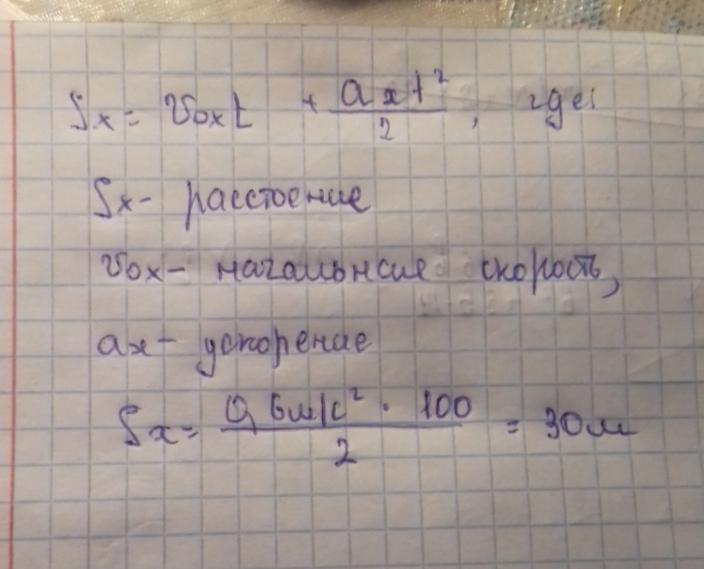 Sx = V₀xt + axt²/2, где:
Sx - расстоение
V₀x - начальная скорость,
ax - ускорение
Sx = 0,6м/с² · 100/2 = 30м